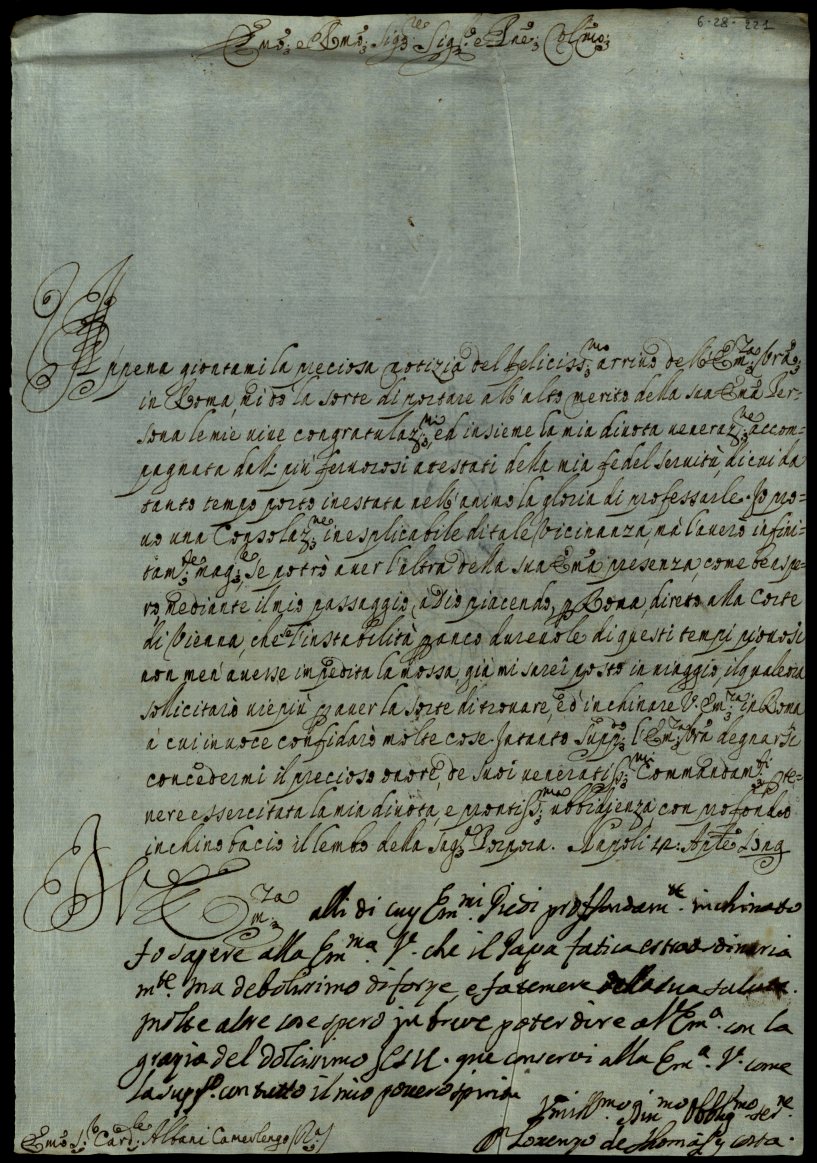 6-28-221
Emo: e Rmo: Sigre Sigr: e Pne: Colmo:
Appena giontami la preciosa notizia del feliciss:mo arrivo dell'Em:za Vra:
in Roma, mi dò la sorte di portare all'alto merito della sua Ema Per=
sona le mie vive congratulaz:ni, ed insieme la mia divota veneraz:ne accom=
pagnata dalli più fervorosi atestati della mia fedel servitù, di cui da
tanto tempo porto inestata nell'animo la gloria di professarle. Io pro=
vo una Consolaz:ne inesplicabile di tale Vicinanza, mà l'averò infini=
tam:te mag:re, se potrò aver l'altra della sua Ema presenza, come ben spe=
ro mediante il mio passaggio, à Dio piacendo, p Roma, direto alla Corte
di Vienna, che se l'instabilità panco durevole di questi tempi piovosi
non men'avesse impedita la mossa, già mi sarei posto in viaggio, il quale ora
sollicitarò viepiù p aver la sorte di trovare, ed inchinare V. Em:za in Roma
à cui in voce confidarò molte cose. Intanto supp:co l'Em:za Vra degnarsi
concedermi il precioso onore, de suoi veneratiss:mi Commandam:ti, te=
nere essercitata la mia divota, e prontiss:ma ubbidienza, con profondo
inchino bacio il lembo della Sag:ra Porpora. Napoli 12: Aple
V Em:za alli di cuy Em:mi Piedi profondam:te inchinato
fo sapere alla Em:ma V.ra che il Papa fatica estraordinaria
m:te ma debolissimo di forze, e fa temere della sua salute.
molte altre cose spero in breve poter dire a V. Em:a con la
grazia del dolcissimo que conservi alla Em:a V.ra come
la supp:co con tutto il mio povero spirito
Umill:mo Div:mo Obblig:mo ser:re
Lorenzo de Thomasy y costa.
Emo S:r Card:le Albani Camerlengo (Ra)